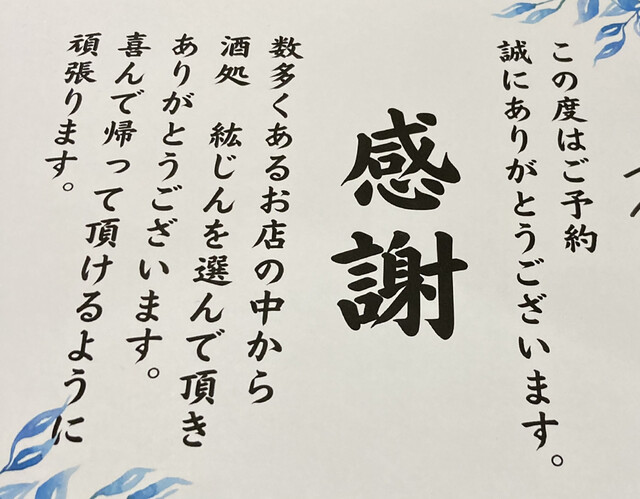 この度はご予約
誠にありがとうございます。
感謝
数多くあるお店の中から
酒処 紘じんを選んで頂き
ありがとうございます。
喜んで帰って頂けるように
頑張ります。